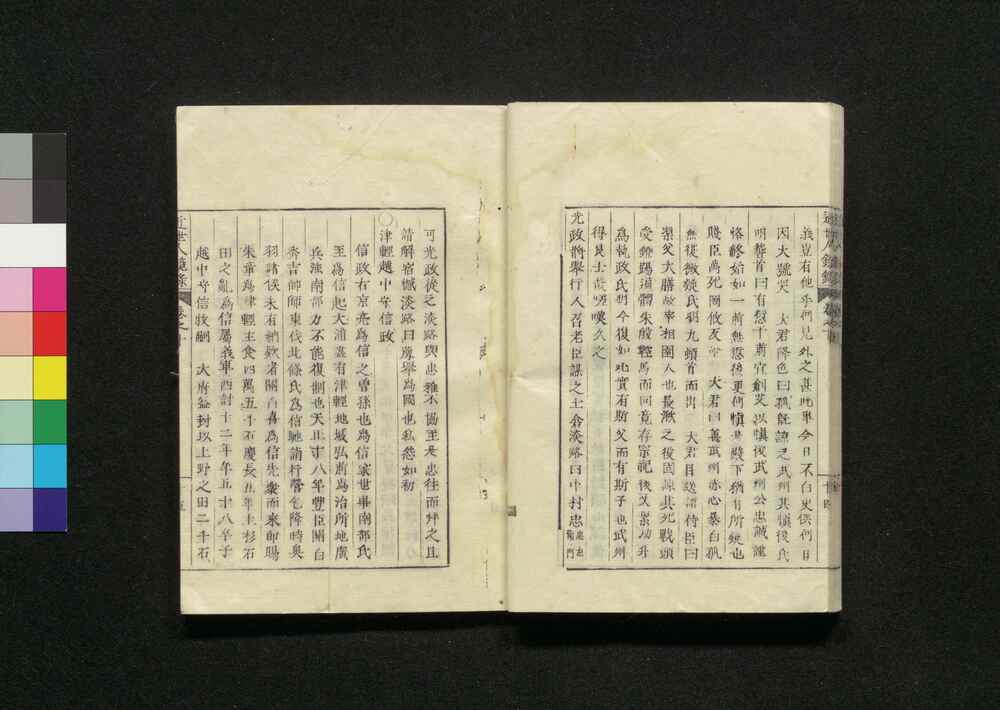 義豈有他乎何見外之甚此事今日不白必俟何日
因大號哭　大君降色曰孤旣諒之武州其愼後氏
明稽首曰有愆十蕭宜創艾以愼後武州公忠誠謹
恪終始如一前無愆後更何愼
賤臣萬死罔攸友　大君曰善武州赤心暴白孤
無復微芥氏明九頓首而出　大君目送諸侍臣曰
潔父大膳故宰相園人也長湫之後固諫其死戰頭
受鐙踢須髯朱殷輕馬而回竟存宗祀後又累功升
爲執政氏明今復如此實有斯父而有斯子也武州
得良士哉嗟嘆久之
光政將擧行人召老臣謀之土倉淡路曰中村忠
可光政從之淡路與忠雅不協至是忠往而拜之且
請解宿憾淡路曰蔑擧爲國也私怨如初
津輕越中守信政
信政右京亮爲信之曾孫也爲信家世事南部氏
至爲信起大浦蠶有津輕地城弘前爲治所地廣
兵强南部力不能復制也天正十八年豐臣關白
秀吉帥師東伐北條氏爲信馳詣行營乞降時奧
羽諸侯未有納欵者關白喜爲信先衆而來命賜
朱章爲津輕主食四萬五千石慶長五年上杉石
田之亂爲信屬義軍西討十二年年五十八卒子
越中守信牧嗣　大府益封以上野之田二千石
近世人鏡錄
卷之十